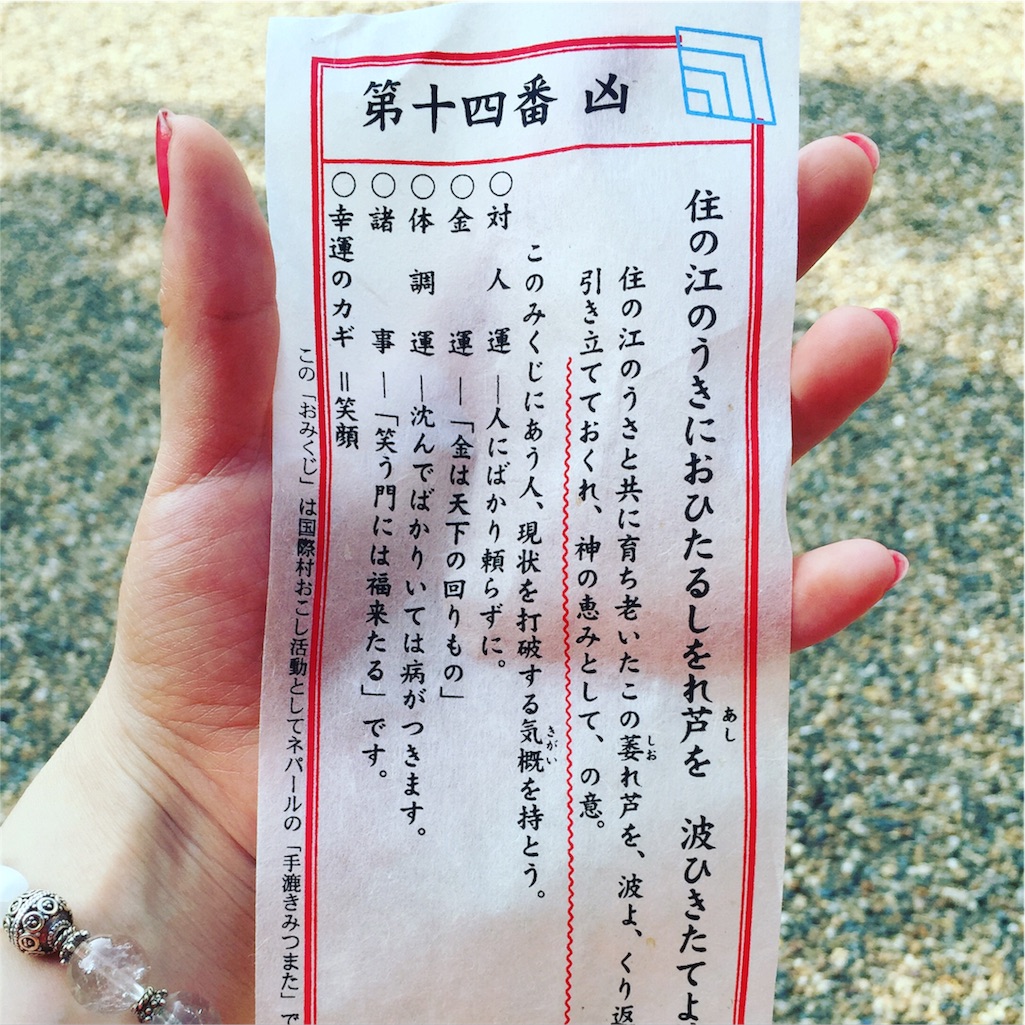 第十四番 凶
住の江のうきにおひたるしをれ芦を 波ひきたてよ
あし
住の江のうさと共に育ち老いたこの萎れ芦を、波よ、くり返
しお
引き立てておくれ、神の恵みとして、の意。
このみくじにあう人、現状を打破する気概を持とう。
きがい
○対人運―人にばかり頼らずに。
○金運―「金は天下の回りもの」
○体調運―沈んでばかりいては病がつきます。
○諸事―「笑う門には福来たる」です。
○幸運のカギ=笑顔
この「おみくじ」は国際村おこし活動としてネパールの「手漉きみつまた」で